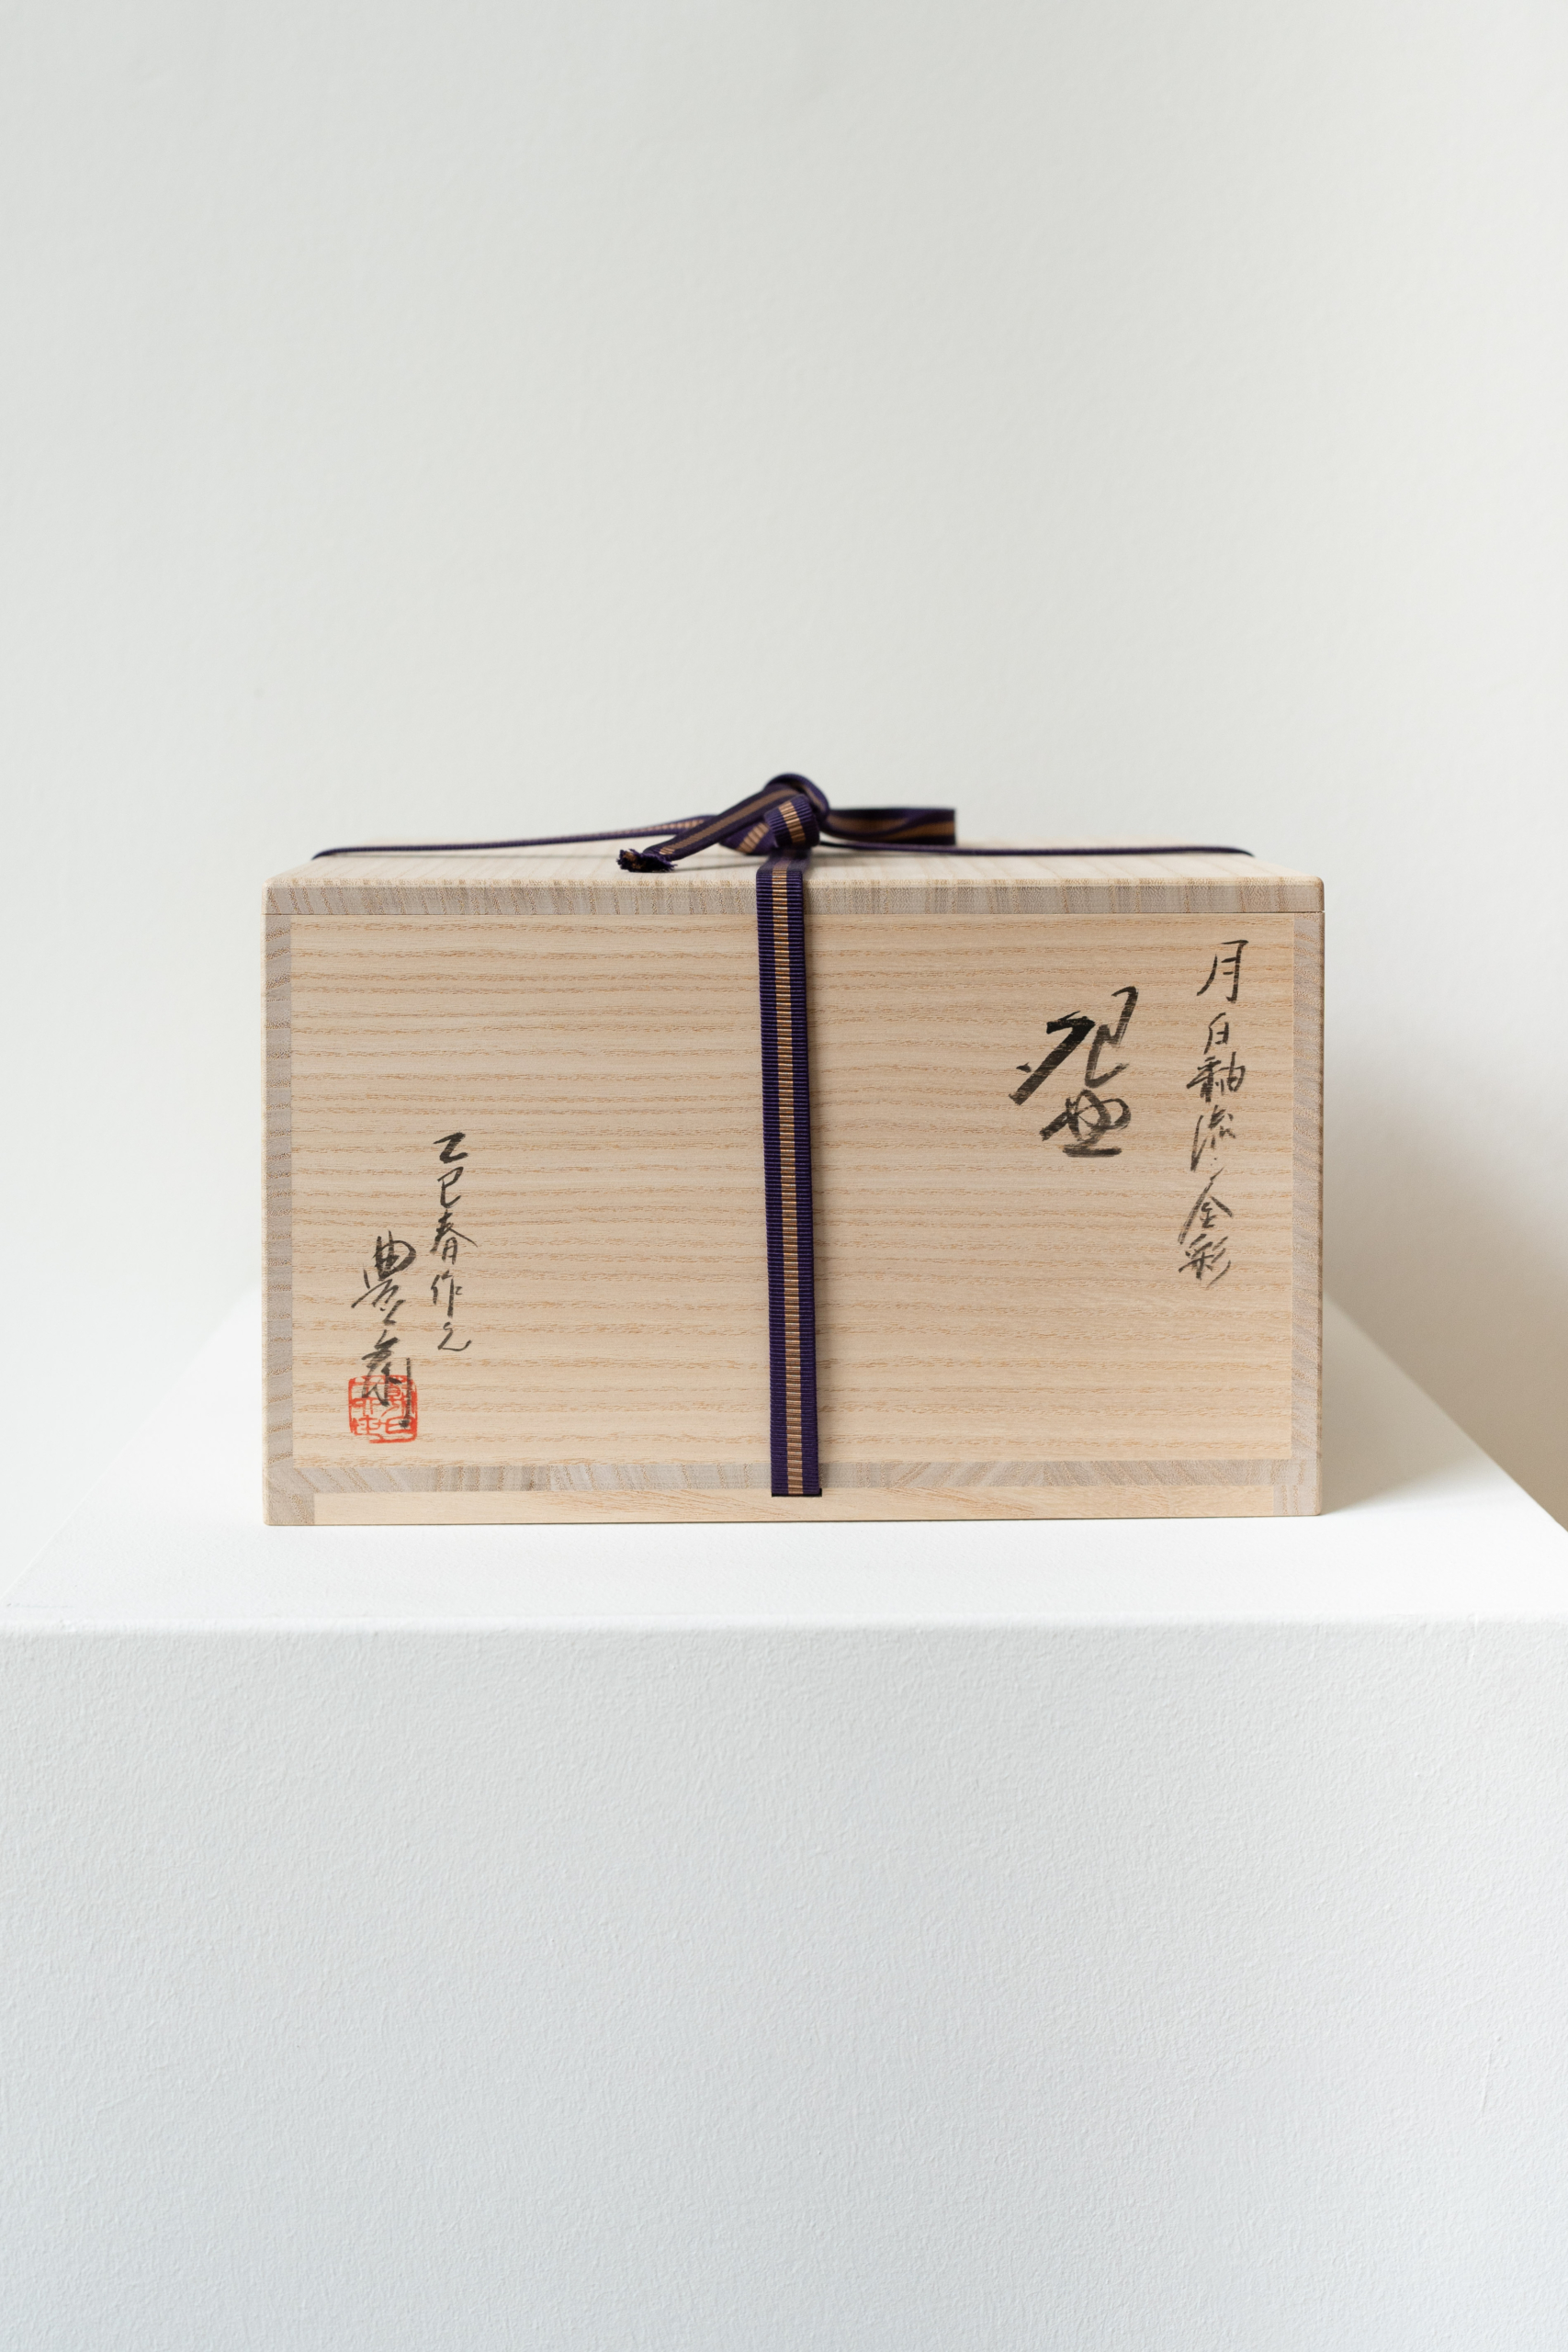 月白釉流金彩
盌
乙巳春作之
豊